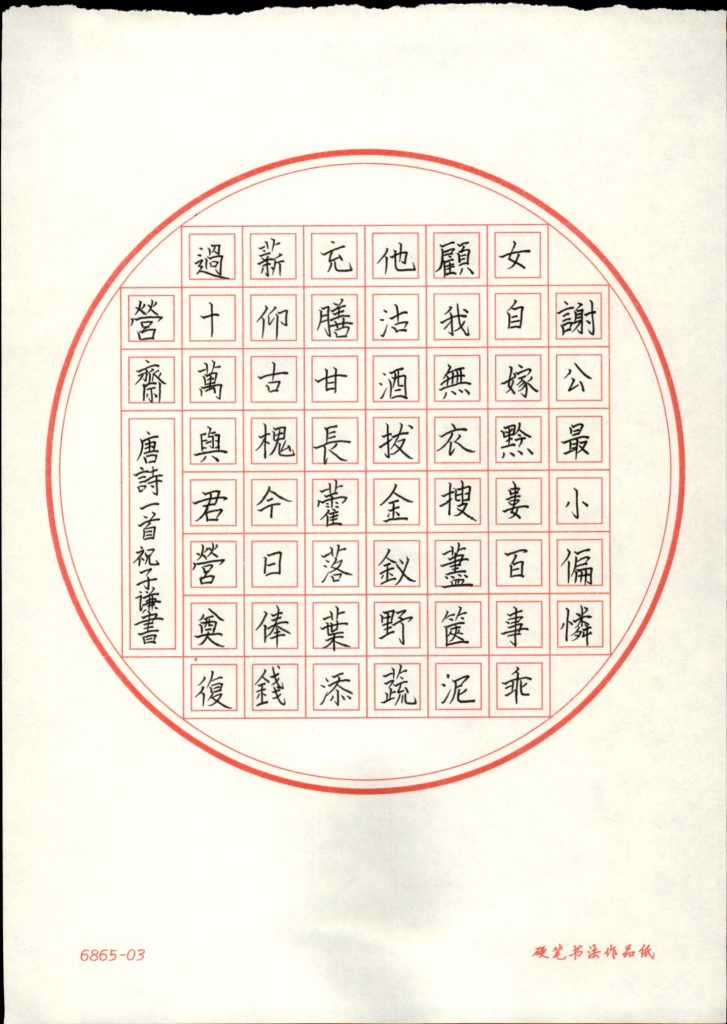 謝公最小偏憐
女自嫁黔婁百事乖
顧我無衣搜藎篋泥
他沽酒拔金釵野蔬
充膳甘長藿落葉添
薪仰古槐今日俸錢
過十萬與君營奠復
營齋
唐詩一首祝子谦書
6865-03
硬笔书法作品纸